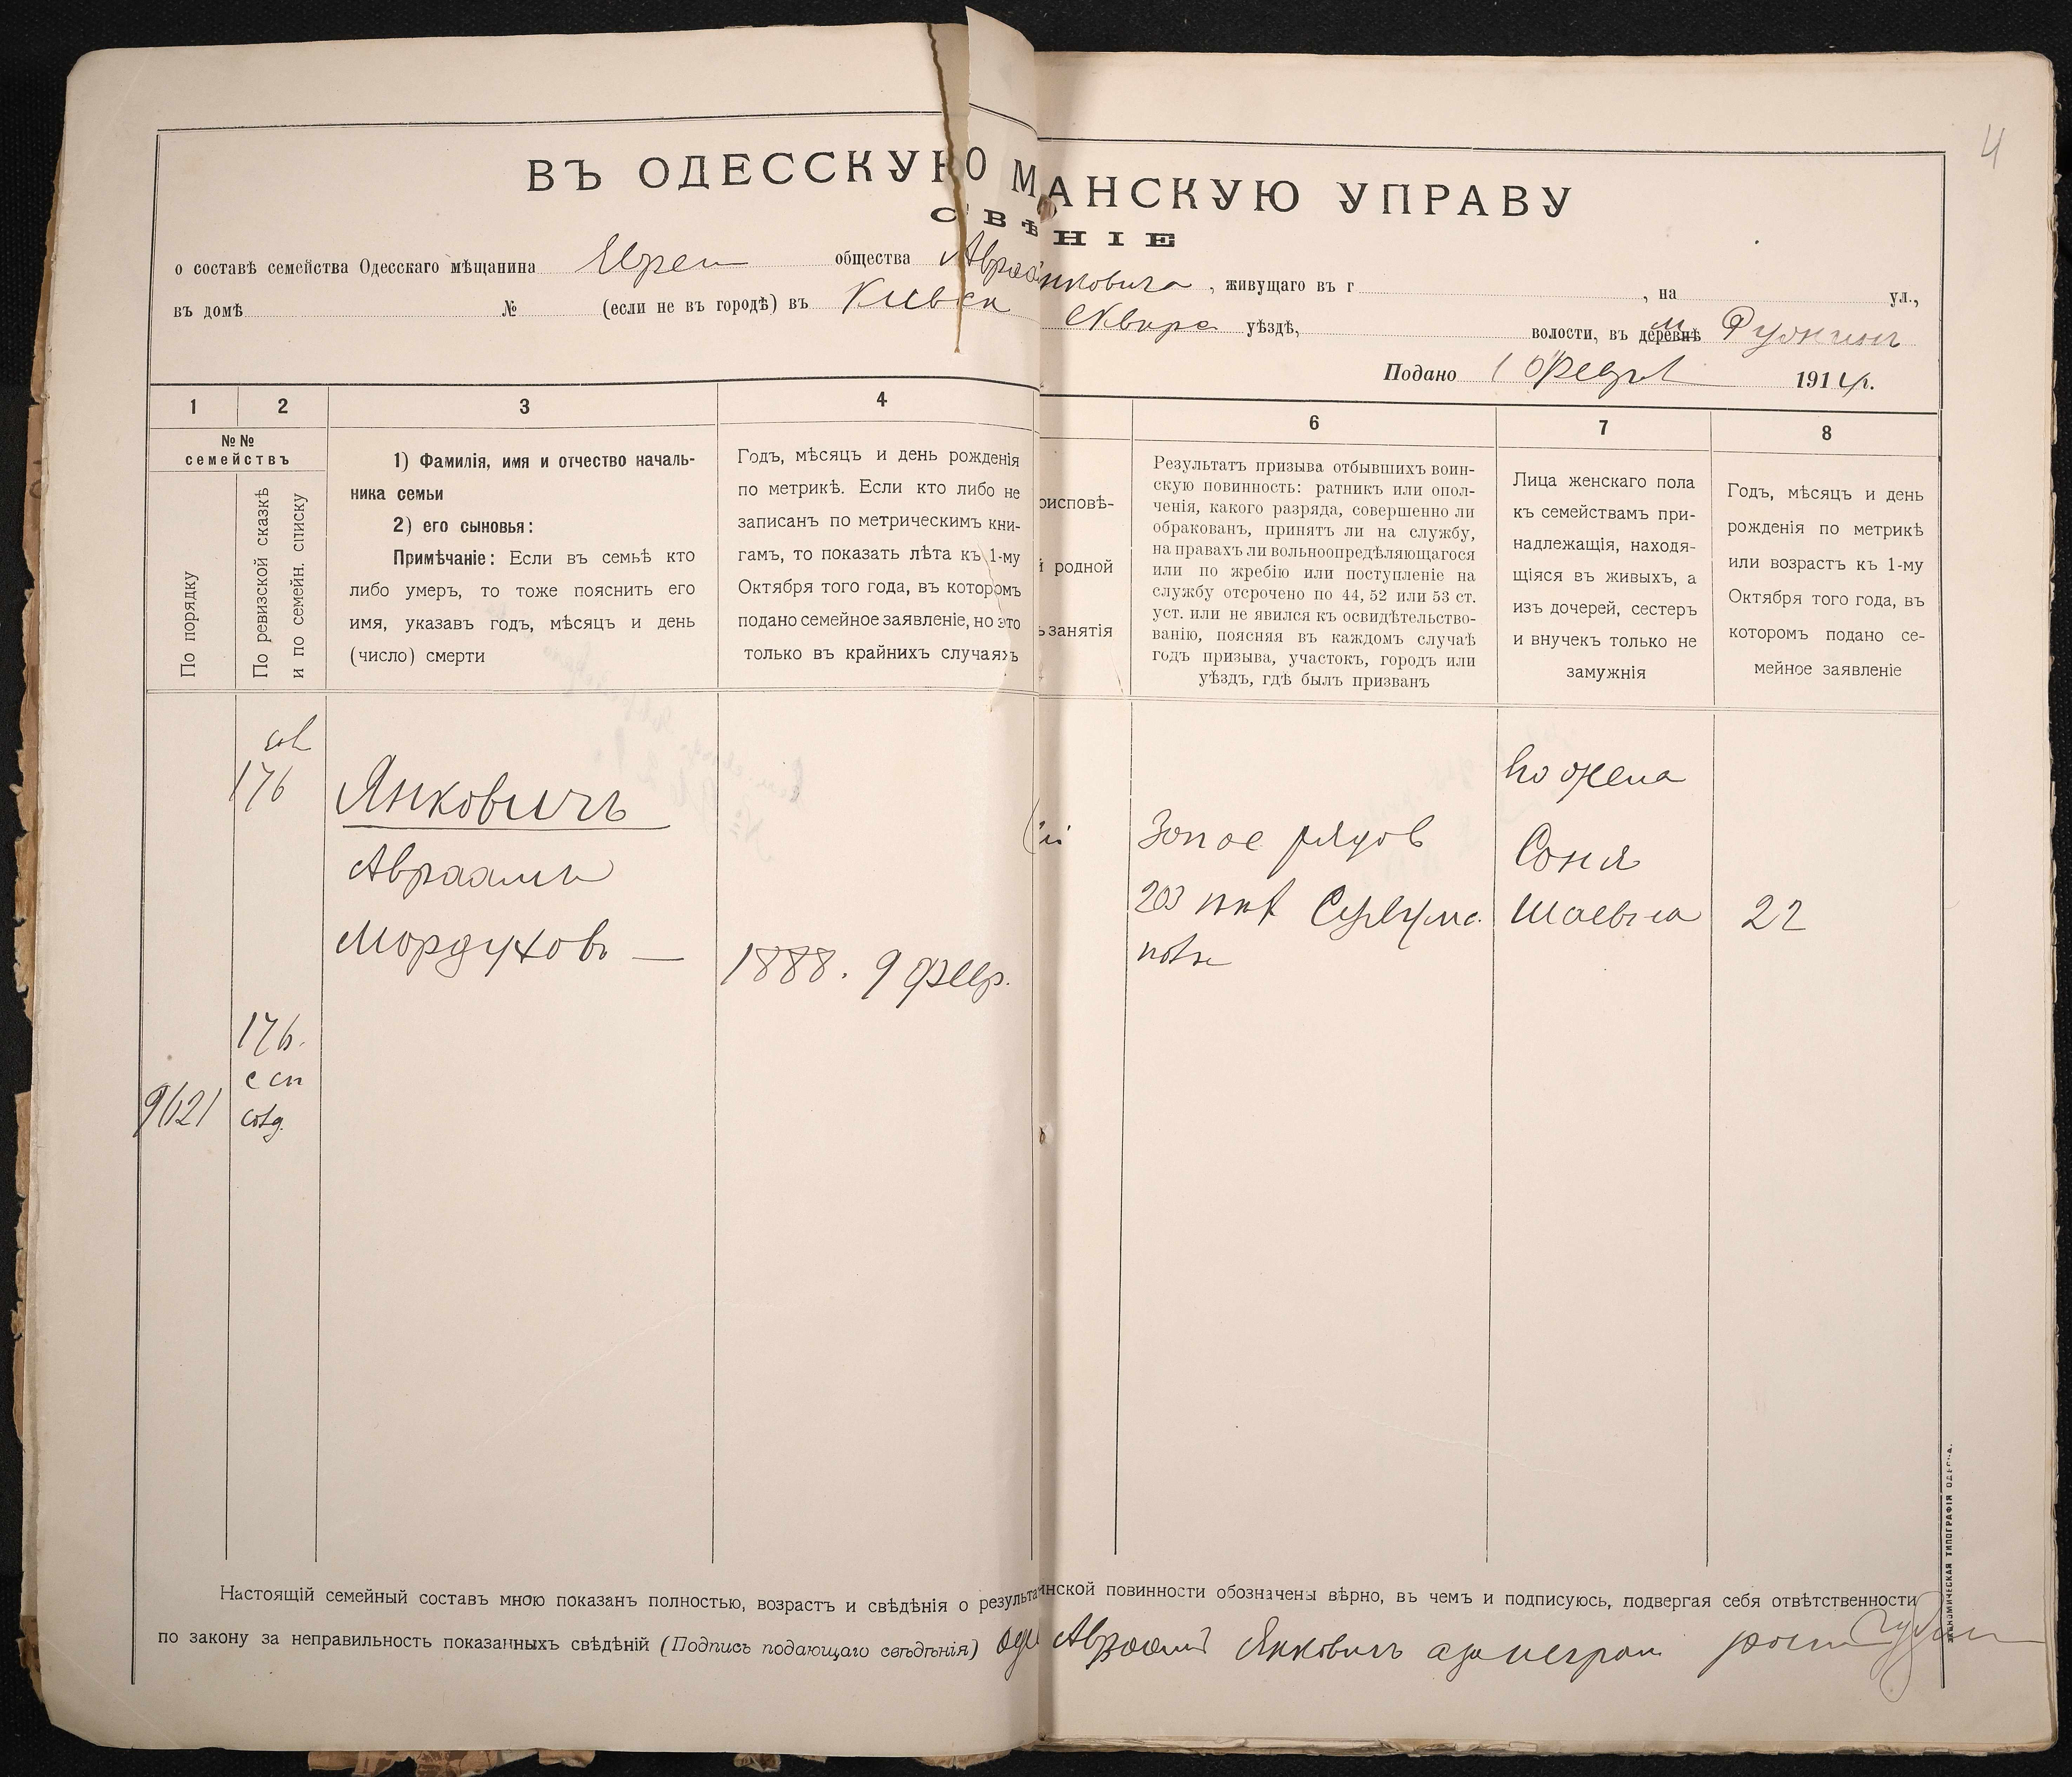 4
ВЪ ОДЕССКУЮ М АНСКУЮ УПРАВУ
СВѢ НІЕ
о составѣ семейства Одесскаго мѣщанина Евреи общества Авраа нковича, живущаго въ г , на ул.,
въ домѣ № (если не въ городѣ) въ Киевск Сквирс уѣздѣ, волости, въ деревнѣ м. Ружинъ
Подано 1914 г.
1 2 3 4 6 7 8
№№
семействъ
По порядку
По ревизской сказкѣ
и по семейн. списку
1) Фамилія, имя и отчество началь-
ника семьи
2) его сыновья:
Примѣчаніе: Если въ семьѣ кто
либо умеръ, то тоже пояснить его
имя, указавъ годъ, мѣсяцъ и день
(число) смерти
Годъ, мѣсяцъ и день рожденія
по метрикѣ. Если кто либо не
записанъ по метрическимъ кни-
гамъ, то показать лѣта къ 1-му
Октября того года, въ которомъ
подано семейное заявленіе, но это
только въ крайнихъ случаяхъ
оисповѣ-
й родной
ъ занятія
Результатъ призыва отбывшихъ воин-
скую повинность: ратникъ или опол-
ченія, какого разряда, совершенно ли
обракованъ, принятъ ли на службу,
на правахъ ли вольноопредѣляющагося
или по жребію или поступленіе на
службу отсрочено по 44, 52 или 53 ст.
уст. или не явился къ освидѣтельство-
ванію, поясняя въ каждомъ случаѣ
годъ призыва, участокъ, городъ или
уѣздъ, гдѣ былъ призванъ
Лица женскаго пола
къ семействамъ при-
надлежащія, находя-
щіяся въ живыхъ, а
изъ дочерей, сестеръ
и внучекъ только не
замужнія
Годъ, мѣсяцъ и день
рожденія по метрикѣ
или возрастъ къ 1-му
Октября того года, въ
которомъ подано се-
мейное заявленіе
176
Янковичъ
Авраамъ
Мордуховъ —
1888. 9 февр.
Запас рядов
203
полк
жена
Соня
Шаевна
22
176.
с сп
9621
Настоящій семейный составъ мною показанъ полностью, возрастъ и свѣдѣнія о результа инской повинности обозначены вѣрно, въ чемъ и подписуюсь, подвергая себя отвѣтственности
по закону за неправильность показанныхъ свѣдѣній (Подпись подающаго свѣдѣнія) Авраамъ Янковичъ а за неграм
ЭКОНОМИЧЕСКАЯ ТИПОГРАФІЯ ОДЕССА.